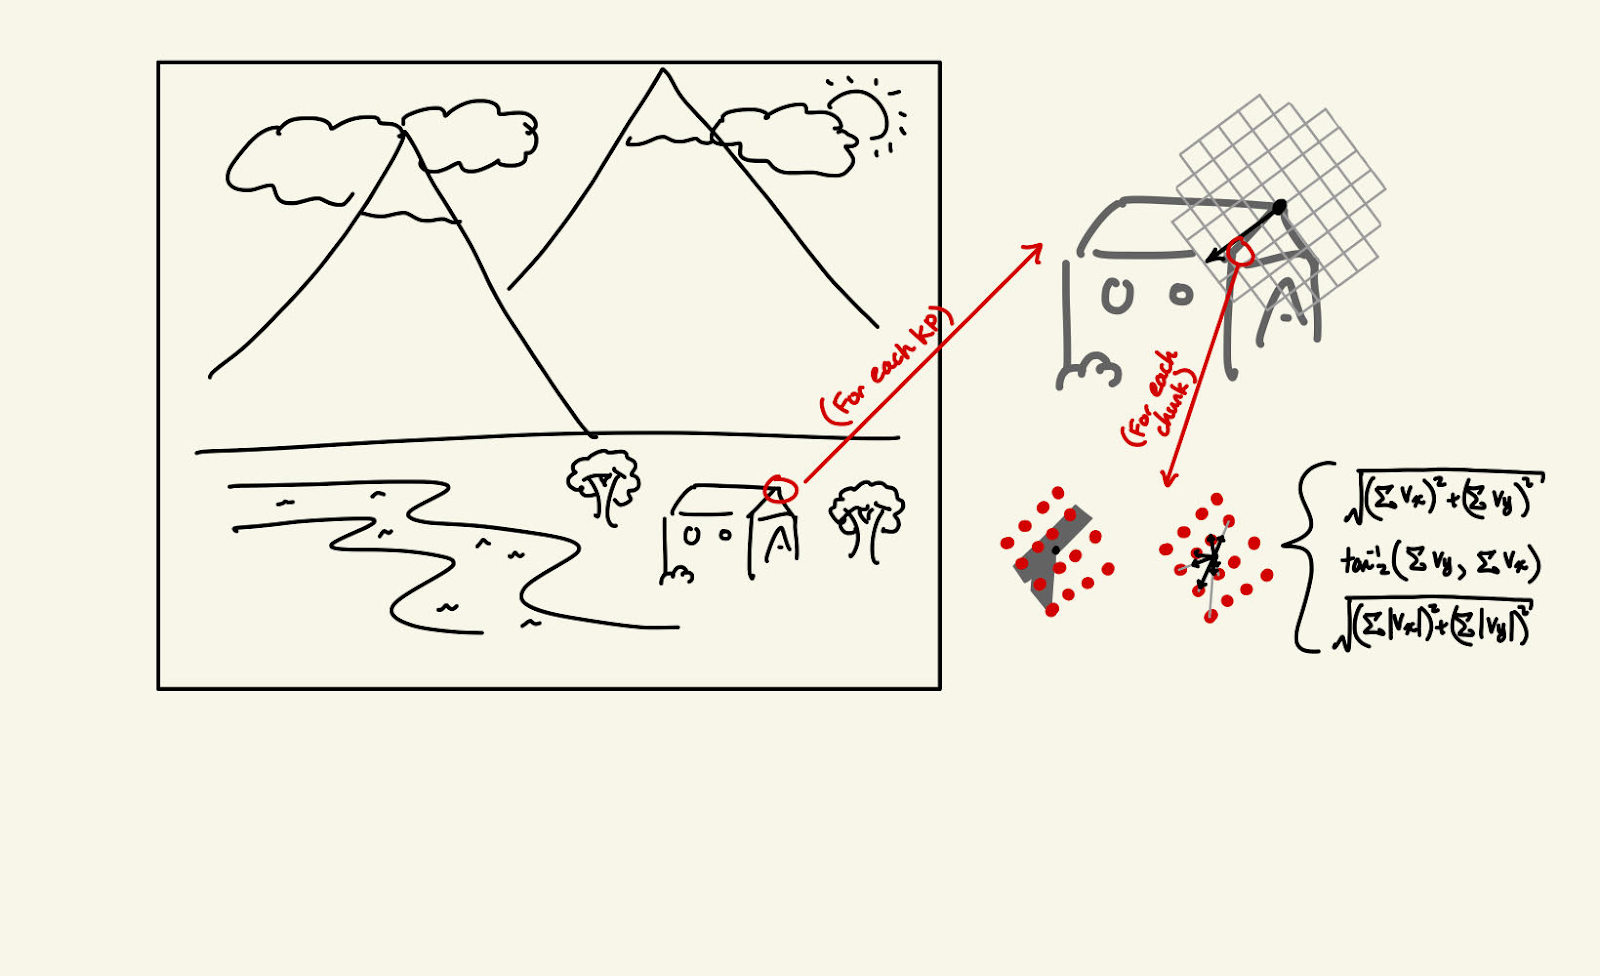 (For each kp)
(For each
chunk)
√(Σ Vx)² + (Σ Vy)²
tan⁻¹₂(Σ Vy, Σ Vx)
√(Σ|Vx|)² + (Σ|Vy|)²